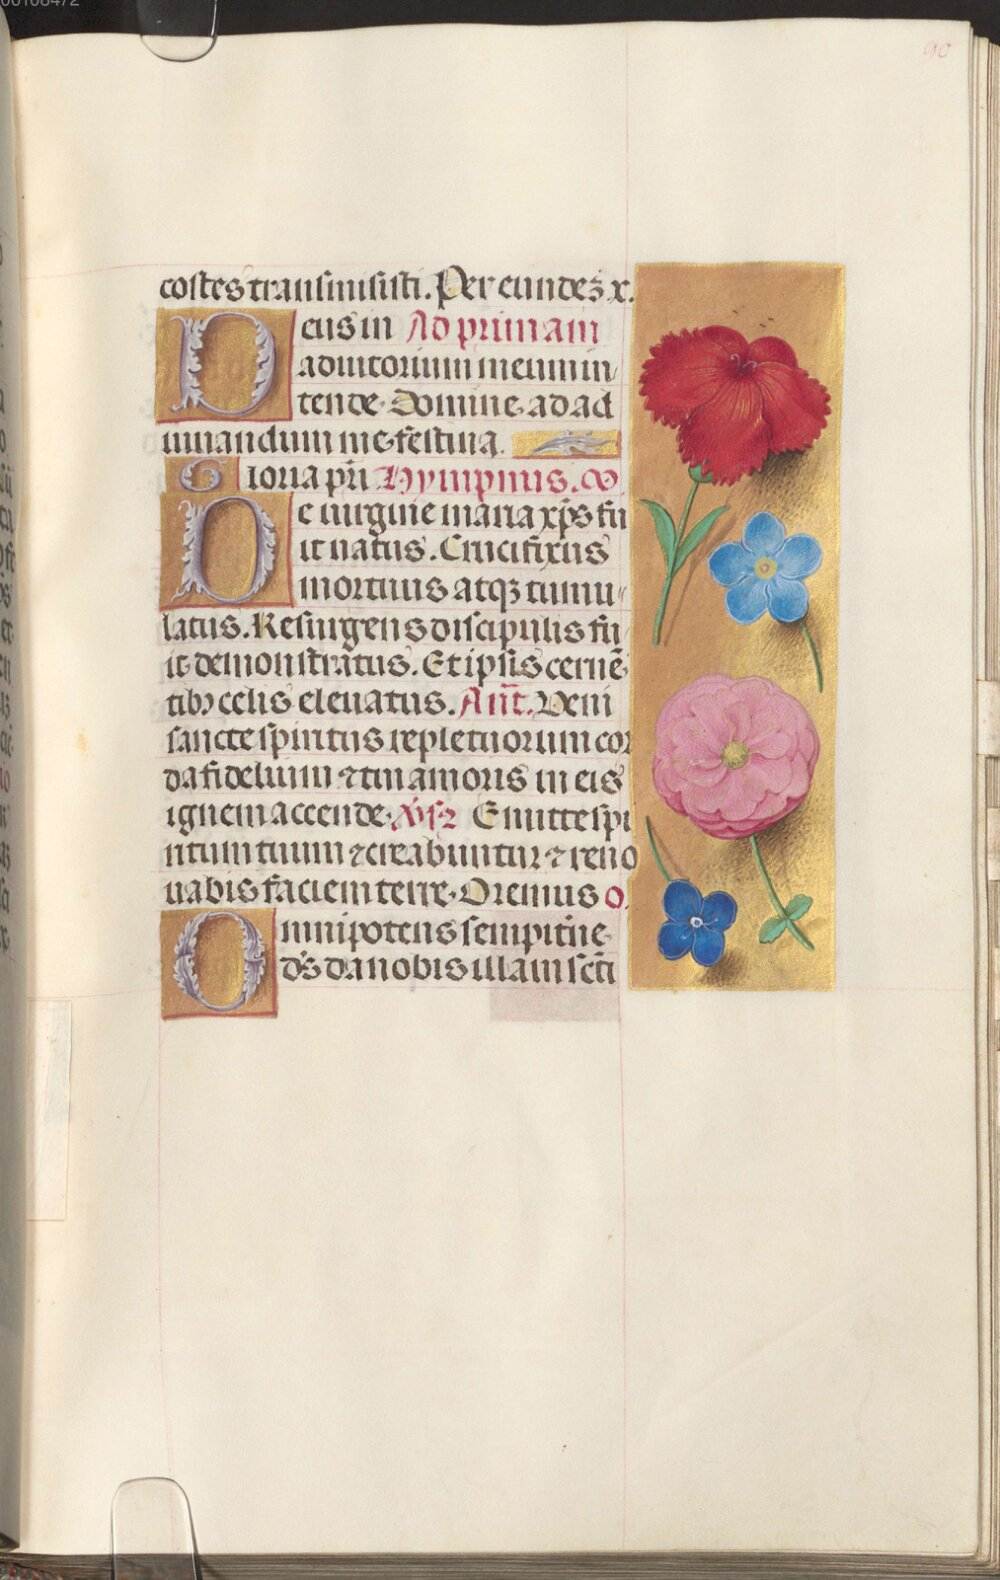 00108472
90
costes transmisisti. Per eundeȝ x.
Deus in Ad primam
adiutorium meum in
tende. Domine ad ad
iuuandum me festina.
Gloria pr̄i Hympnus.
De uirgine maria xp̄s fu
it natus. Crucifixus
mortuus atqȝ tumu
latus. Resurgens discipulis fu
it demonstratus. Et ipsis cernē
tibꝰ celis eleuatus. Ant̄. Veni
sancte spiritus reple tuorum cor
da fidelium ⁊ tui amoris in eis
ignem accende. Emitte spi
ritum tuum ⁊ creabuntur ⁊ reno
uabis faciem terre. Oremus o.
Omnipotens sempitn̄e
ds̄ da nobis illam sct̄i